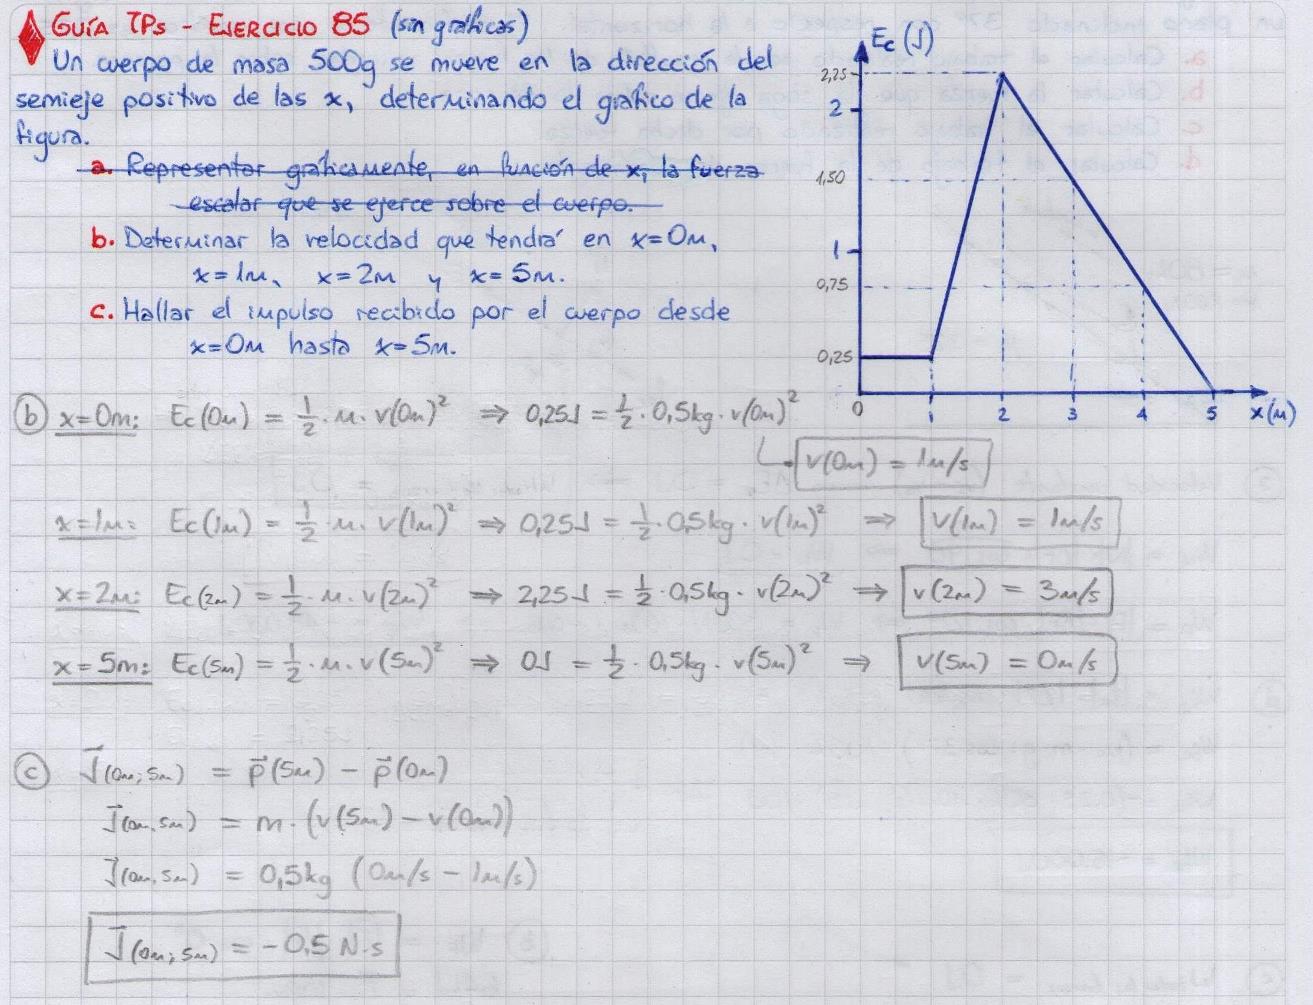 GUÍA TPs - EJERCICIO 85 (sin gráficas)
Un cuerpo de masa 500g se mueve en la dirección del
semieje positivo de las x, determinando el gráfico de la
figura.
a. Representar gráficamente, en función de x, la fuerza
escalar que se ejerce sobre el cuerpo.
b. Determinar la velocidad que tendrá en x=0m,
x=1m, x=2m y x=5m.
c. Hallar el impulso recibido por el cuerpo desde
x=0m hasta x=5m.
Ec (J)
2,25
2
1,50
1
0,75
0,25
0 1 2 3 4 5 x(m)
b) x=0m: Ec(0m) = 1/2 · m · v(0m)² ⇒ 0,25J = 1/2 · 0,5kg · v(0m)²
v(0m) = 1m/s
x=1m: Ec(1m) = 1/2 · m · v(1m)² ⇒ 0,25J = 1/2 · 0,5kg · v(1m)² ⇒ v(1m) = 1m/s
x=2m: Ec(2m) = 1/2 · m · v(2m)² ⇒ 2,25J = 1/2 · 0,5kg · v(2m)² ⇒ v(2m) = 3m/s
x=5m: Ec(5m) = 1/2 · m · v(5m)² ⇒ 0J = 1/2 · 0,5kg · v(5m)² ⇒ v(5m) = 0m/s
c) J⃗(0m; 5m) = p⃗(5m) - p⃗(0m)
J⃗(0m; 5m) = m · (v(5m) - v(0m))
J⃗(0m; 5m) = 0,5kg (0m/s - 1m/s)
J⃗(0m; 5m) = -0,5 N·s